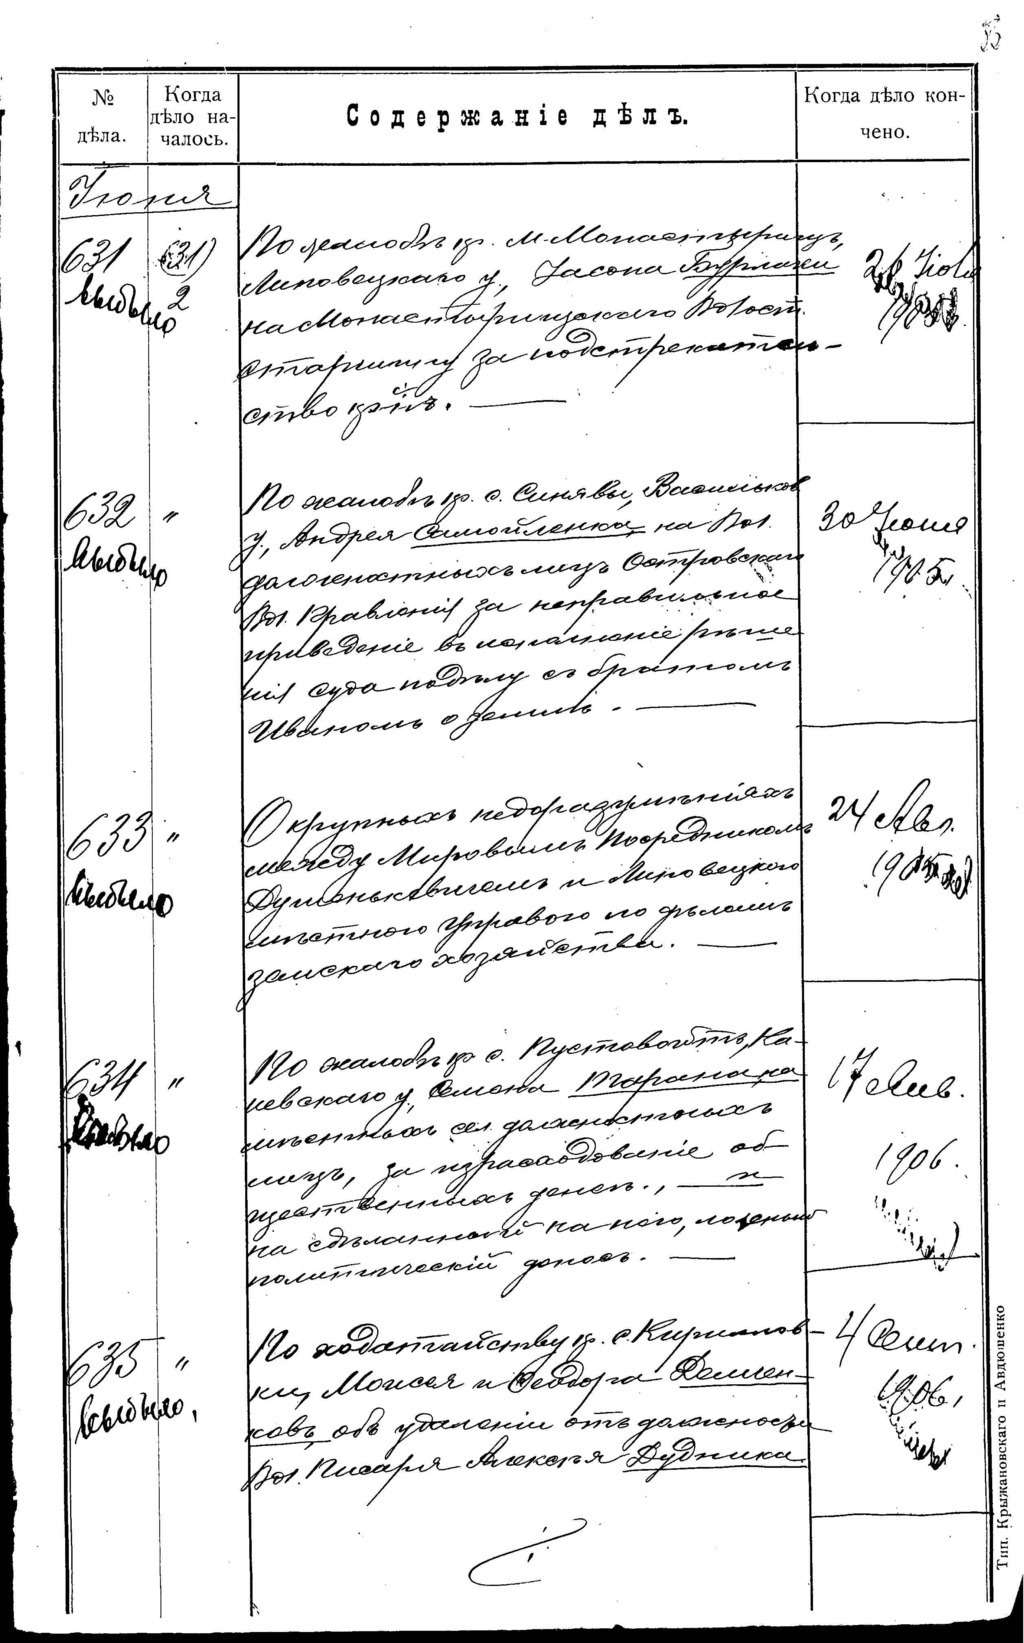 № дѣла.
Когда дѣло на-
чалось.
Содержаніе дѣлъ.
Когда дѣло кон-
чено.
Іюня
631 (631) 2
выбыло
По жалобѣ кр. м. Монастырищъ,
Липовецкаго у., Іасона Бурлаки
на Монастырищскаго Волост.
старшину за подстрекатель-
ство
26
632 "
выбыло
По жалобѣ кр. с. Синявы, Васильков
у., Андрея Самойленка, на Вол.
должностныхъ лицъ Островскаго
Вол. Правленія за неправильное
приведеніе въ исполненіе рѣше
нія суда по дѣлу съ братомъ
Иваномъ о землѣ.
30 Іюня
1905
633 "
выбыло
О крупныхъ недоразумѣніяхъ
между Мировымъ Посредникомъ
и Липовецкаго
по дѣламъ
земскаго хозяйства.
24 Авг.
634 "
выбыло
По жалобѣ кр с. Пустовойтъ, Ка-
невскаго у., Семена Таранака
мѣстныхъ сел. должностныхъ
лицъ, за израсходованіе об
щественныхъ денегъ., и
на сдѣланный на него, ложный
политическій доносъ.
17 Янв.
1906.
635 "
выбыло,
По ходатайству кр. с. Кириловки,
Моисея и Ѳеодора Демен-
ковъ, объ удаленіи отъ должности
Вол. Писаря Алексѣя Дудника.
4 Сент.
1906,
Тип. Крыжановскаго и Авдюшенко